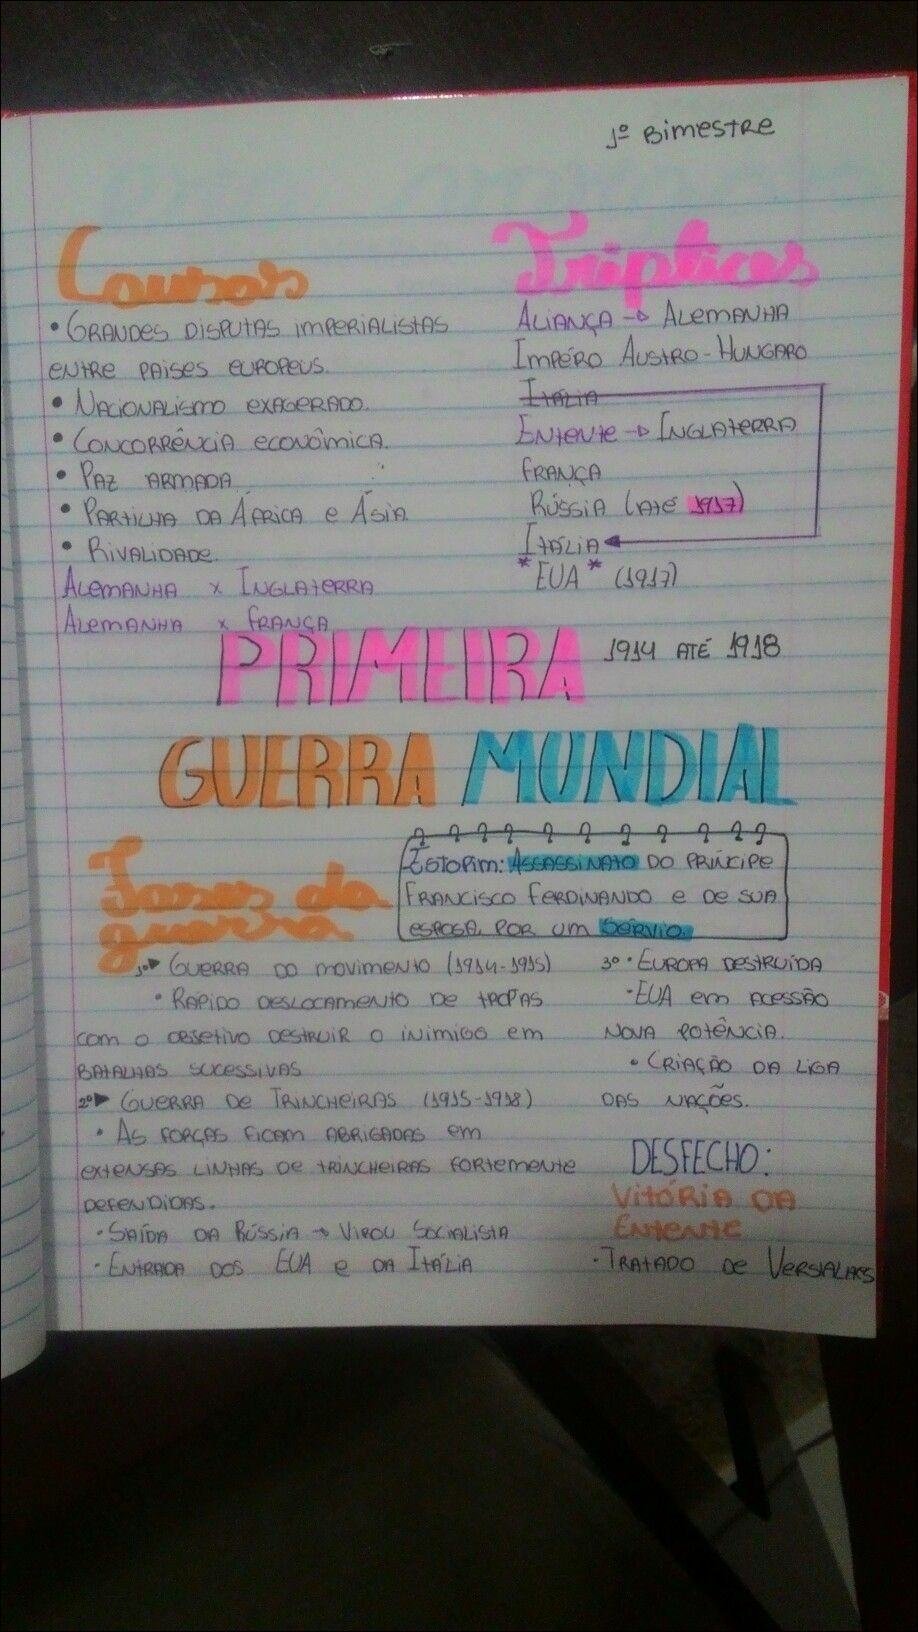 1º Bimestre
Causas
• Grandes disputas imperialistas
entre países europeus.
• Nacionalismo exagerado.
• Concorrência econômica.
• Paz armada
• Partilha da África e Ásia
• Rivalidade.
Alemanha x Inglaterra
Alemanha x França
Tríplices
Aliança → Alemanha
Impéro Austro-Hungaro
Itália
Entente → Inglaterra
França
Rússia (até 1917)
Itália
*EUA* (1917)
PRIMEIRA 1914 até 1918
GUERRA MUNDIAL
Estopim: Assassinato do príncipe
Francisco Ferdinando e de sua
esposa por um sérvio.
Fases da
guerra
1º▶ Guerra do movimento (1914-1915)
• Rápido deslocamento de tropas
com o objetivo destruir o inimigo em
batalhas sucessivas
2º▶ Guerra de Trincheiras (1915-1918)
• As forças ficam abrigadas em
extensas linhas de trincheiras fortemente
defendidas.
• Saída da Rússia → Virou Socialista
• Entrada dos EUA e da Itália
3º • Europa destruída
• EUA em acessão
nova potência.
• Criação da Liga
das Nações.
DESFECHO:
Vitória da
Entente
• Tratado de Versialhes